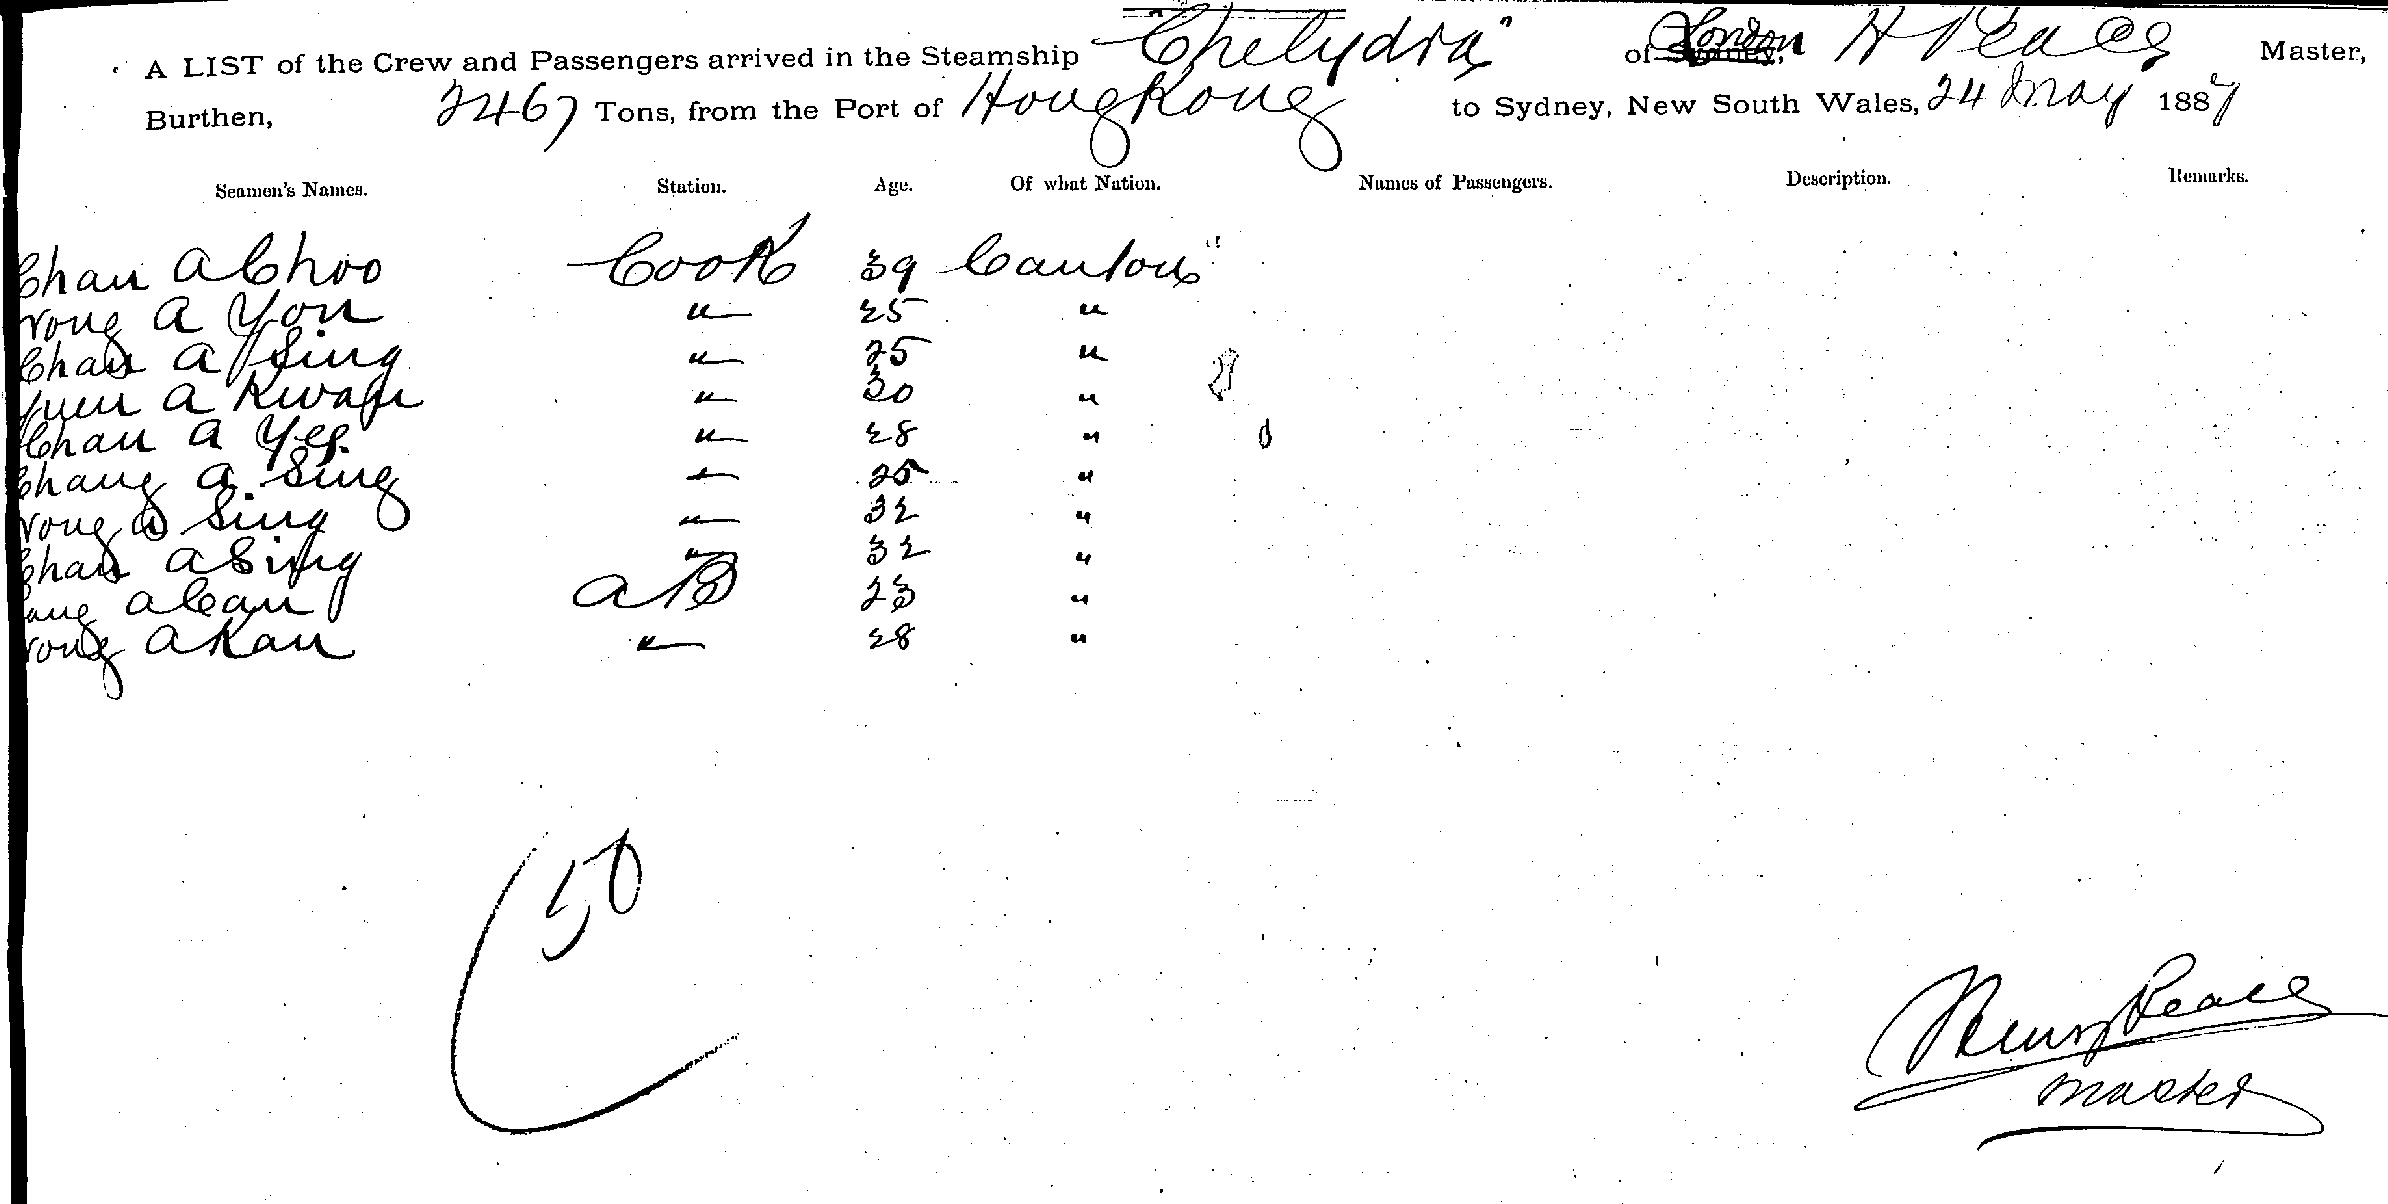 A LIST of the Crew and Passengers arrived in the Steamship "Chelydra" of London H Peace Master,
Burthen, 2467 Tons, from the Port of Hong Kong to Sydney, New South Wales, 24 May 1887
Seamen's Names. Station. Age. Of what Nation. Names of Passengers. Description. Remarks.
Chan A Choo Cook 39 Canton
Wong A You " 25 "
Chan A Sing " 25 "
Yuen A Kwan " 30 "
Chan A Yee " 28 "
Chang A Sing " 25 "
Wong A Sing " 32 "
Chan A Sing " 32 "
A Can AB 23 "
Wong A Kan " 28 "
50
Henry Peace
Master